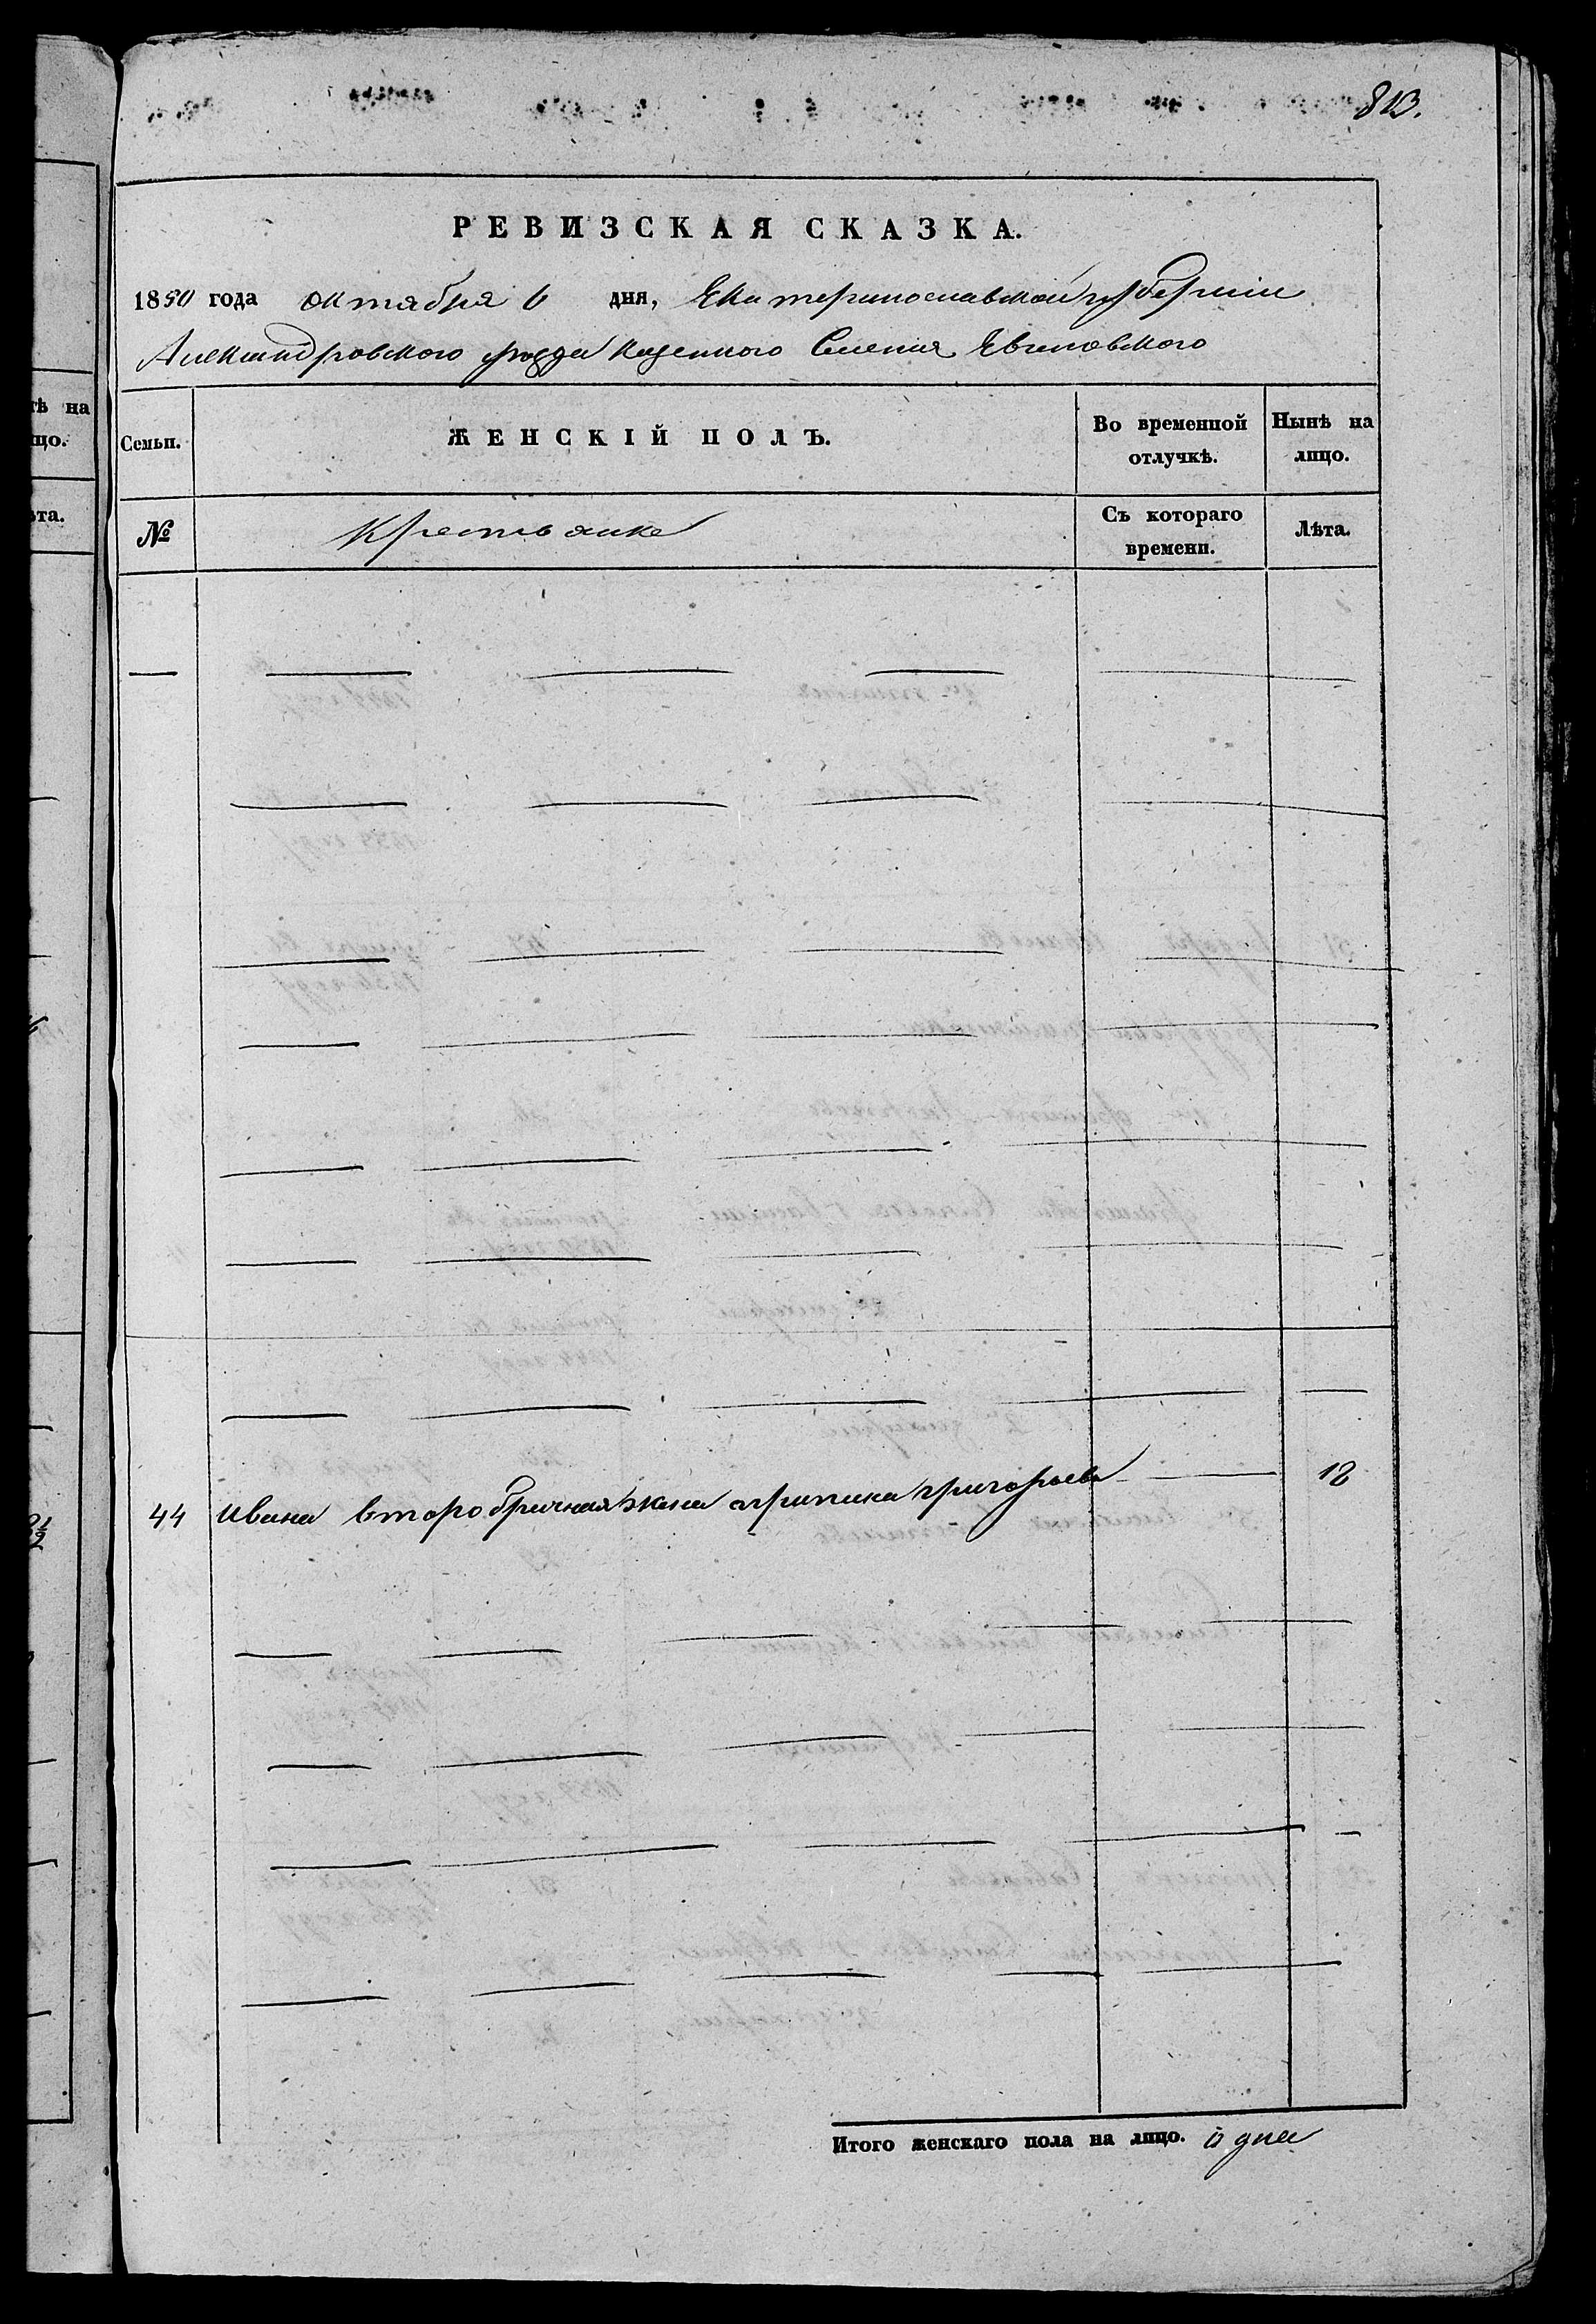 813.
РЕВИЗСКАЯ СКАЗКА.
1850 года октября 6 дня, Екатеринославской губернии
Александровского уезда казенного Селения
Семьи. ЖЕНСКІЙ ПОЛЪ. Во временной отлучкѣ. Нынѣ на лицо.
№ Крестьянке Съ котораго времени. Лѣта.
44 Ивана второбрачная жена агрипина григорьева 18
Итого женскаго пола на лицо. одна
тѣ на
цо.
ѣта.